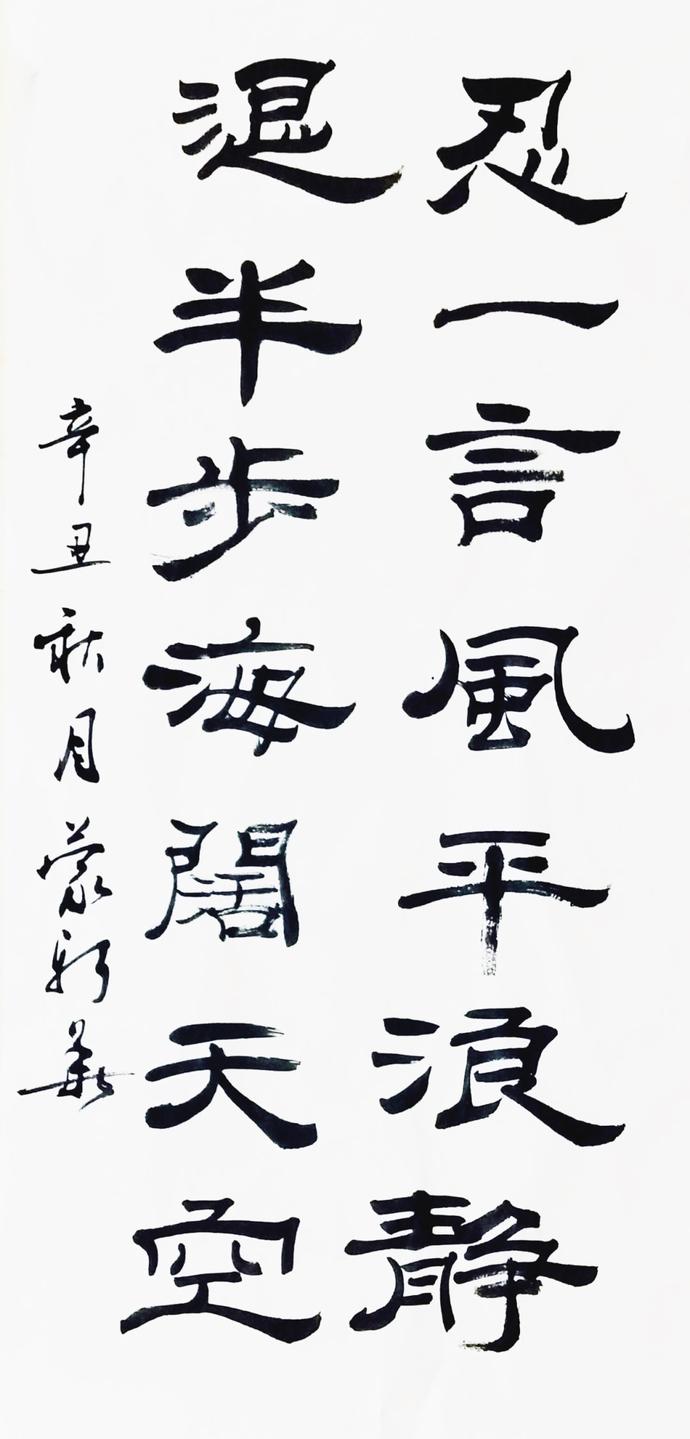 忍一言風平浪靜
退半步海闊天空
辛丑秋月蒙新華